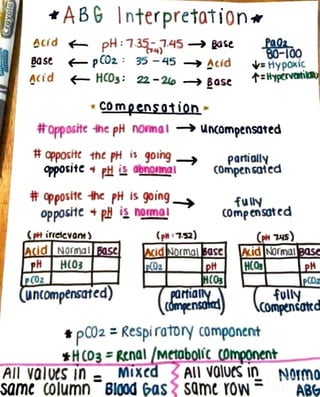 Crayola
★ABG Interpretation★
Acid ← pH: 7.35-7.45 → Base
(7.4)
Base ← pCO2: 35-45 → Acid
Acid ← HCO3: 22-26 → Base
PaO2
80-100
↓= Hypoxic
↑=Hyperventilation
★compensation★
#opposite the pH normal → uncompensated
# opposite the pH is going → partially
opposite + pH is abnormal compensated
# opposite the pH is going → fully
opposite + pH is normal compensated
(pH irrelevant)
Acid Normal Base
pH HCO3
pCO2
(uncompensated)
(pH: 7.52)
Acid Normal Base
pCO2 pH
HCO3
(partially
compensated)
(pH 7.45)
Acid Normal Base
HCO3 pH
pCO2
(fully
compensated)
★pCO2 = Respiratory component
★HCO3 = Renal/Metabolic component
All values in = Mixed
same column Blood Gas
All values in = Norma
same row ABG